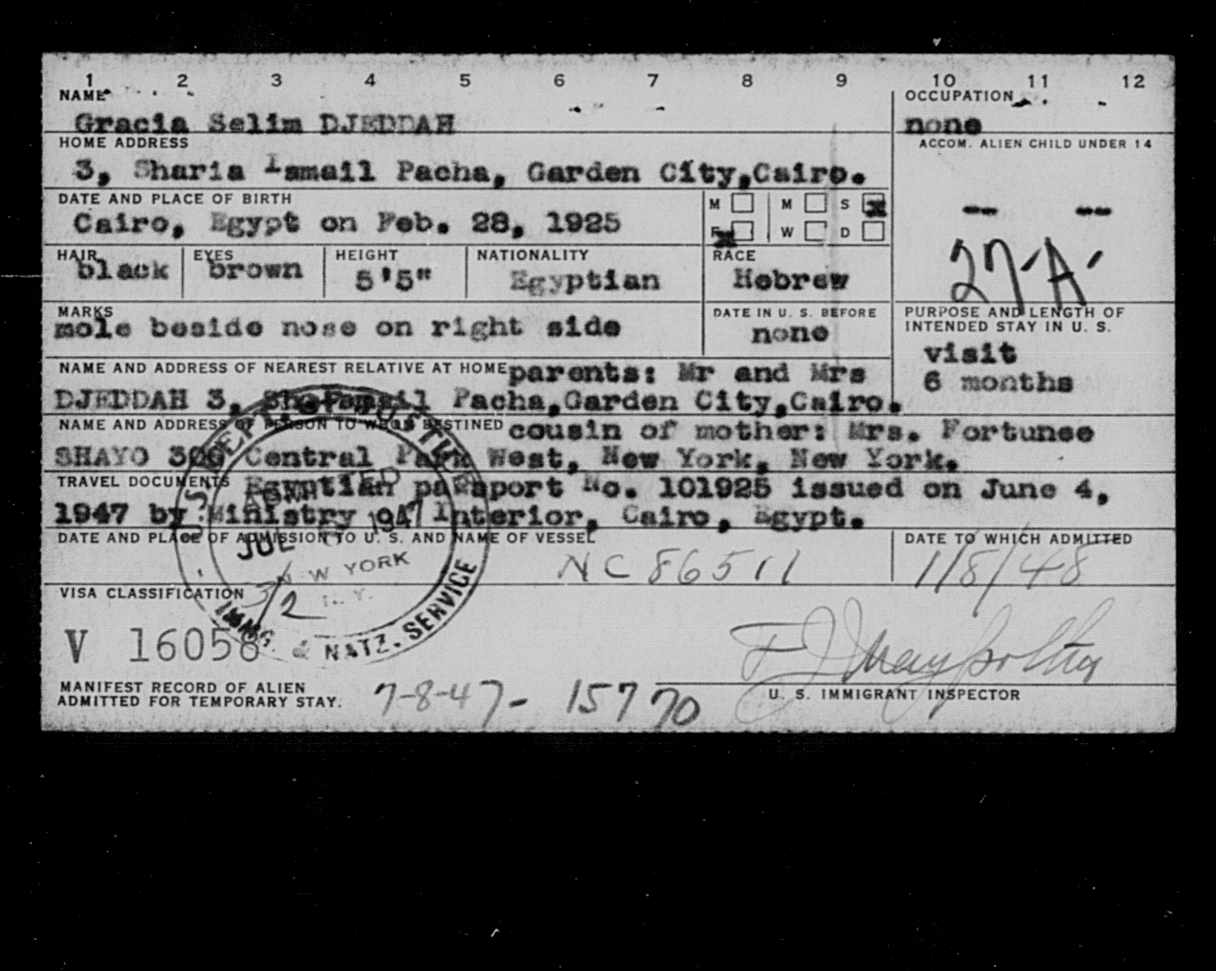 1 2 3 4 5 6 7 8 9 10 11 12
NAME
Gracia Selim DJEDDAH
OCCUPATION
none
HOME ADDRESS
3, Sharia Ismail Pacha, Garden City,Cairo.
ACCOM. ALIEN CHILD UNDER 14
-- --
27-A-
DATE AND PLACE OF BIRTH
Cairo, Egypt on Feb. 28, 1925
M M S x
F x W D
HAIR
black
EYES
brown
HEIGHT
5'5"
NATIONALITY
Egyptian
RACE
Hebrew
MARKS
mole beside nose on right side
DATE IN U. S. BEFORE
none
PURPOSE AND LENGTH OF
INTENDED STAY IN U. S.
visit
6 months
NAME AND ADDRESS OF NEAREST RELATIVE AT HOME parents: Mr and Mrs
DJEDDAH 3, Sh. Ismail Pacha,Garden City,Cairo.
NAME AND ADDRESS OF PERSON TO WHOM DESTINED cousin of mother: Mrs. Fortunee
SHAYO 300 Central Park West, New York, New York.
TRAVEL DOCUMENTS Egyptian passport No. 101925 issued on June 4,
1947 by Ministry of Interior, Cairo, Egypt.
DATE AND PLACE OF ADMISSION TO U. S. AND NAME OF VESSEL
NC 86511
DATE TO WHICH ADMITTED
1/8/48
U. S. DEPT. OF JUSTICE
ADMITTED
JUL 1947
NEW YORK
N. Y.
IMMG. & NATZ. SERVICE
3/2
VISA CLASSIFICATION
V 16058
MANIFEST RECORD OF ALIEN
ADMITTED FOR TEMPORARY STAY.
7-8-47- 15770
U. S. IMMIGRANT INSPECTOR